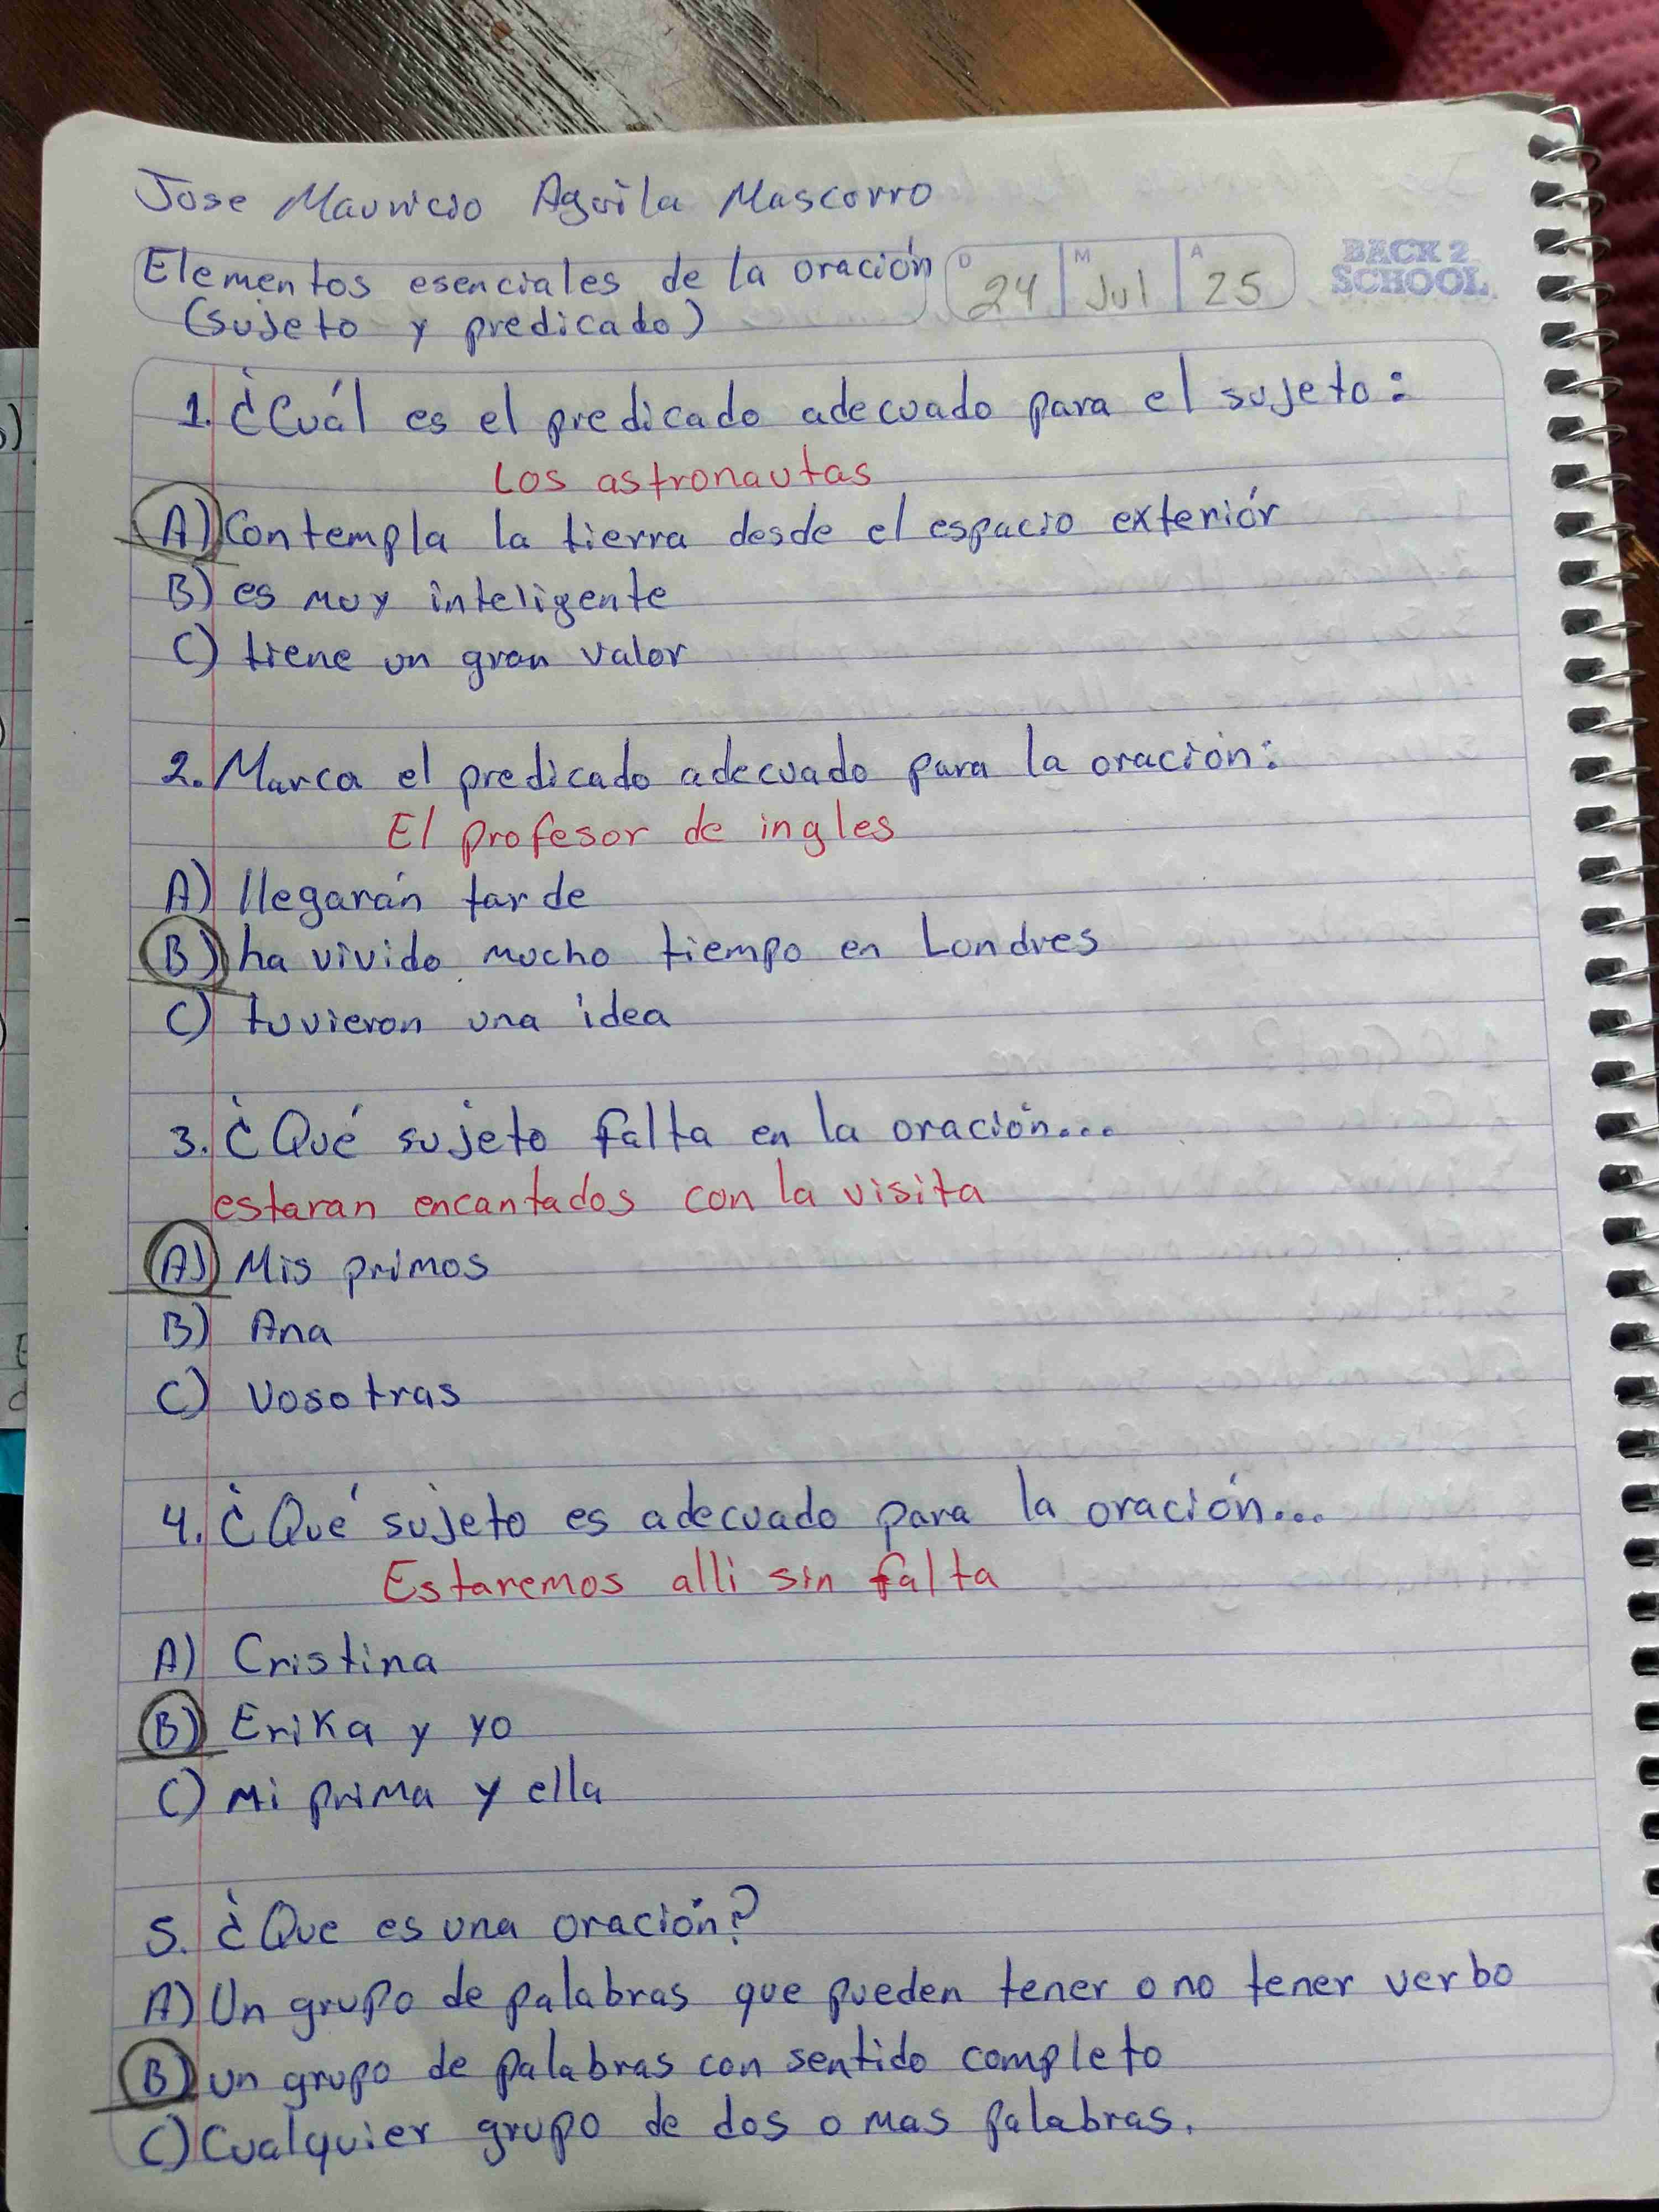 Jose Mauricio Aguila Mascorro
Elementos esenciales de la oración
D 24 M Jul A 25
BACK 2
SCHOOL
(sujeto y predicado)
1. ¿Cuál es el predicado adecuado para el sujeto:
Los astronautas
A) Contempla la tierra desde el espacio exteriór
B) es muy inteligente
C) tiene un gran valor
2. Marca el predicado adecuado para la oración:
El profesor de ingles
A) llegarán tarde
B) ha vivido mucho tiempo en Londres
C) tuvieron una idea
3. ¿Qué sujeto falta en la oración...
estaran encantados con la visita
A) Mis primos
B) Ana
C) Vosotras
4. ¿Qué sujeto es adecuado para la oración...
Estaremos alli sin falta
A) Cristina
B) Erika y yo
C) Mi prima y ella
5. ¿Que es una oración?
A) Un grupo de palabras que pueden tener o no tener verbo
B) un grupo de palabras con sentido completo
C) Cualquier grupo de dos o mas palabras.